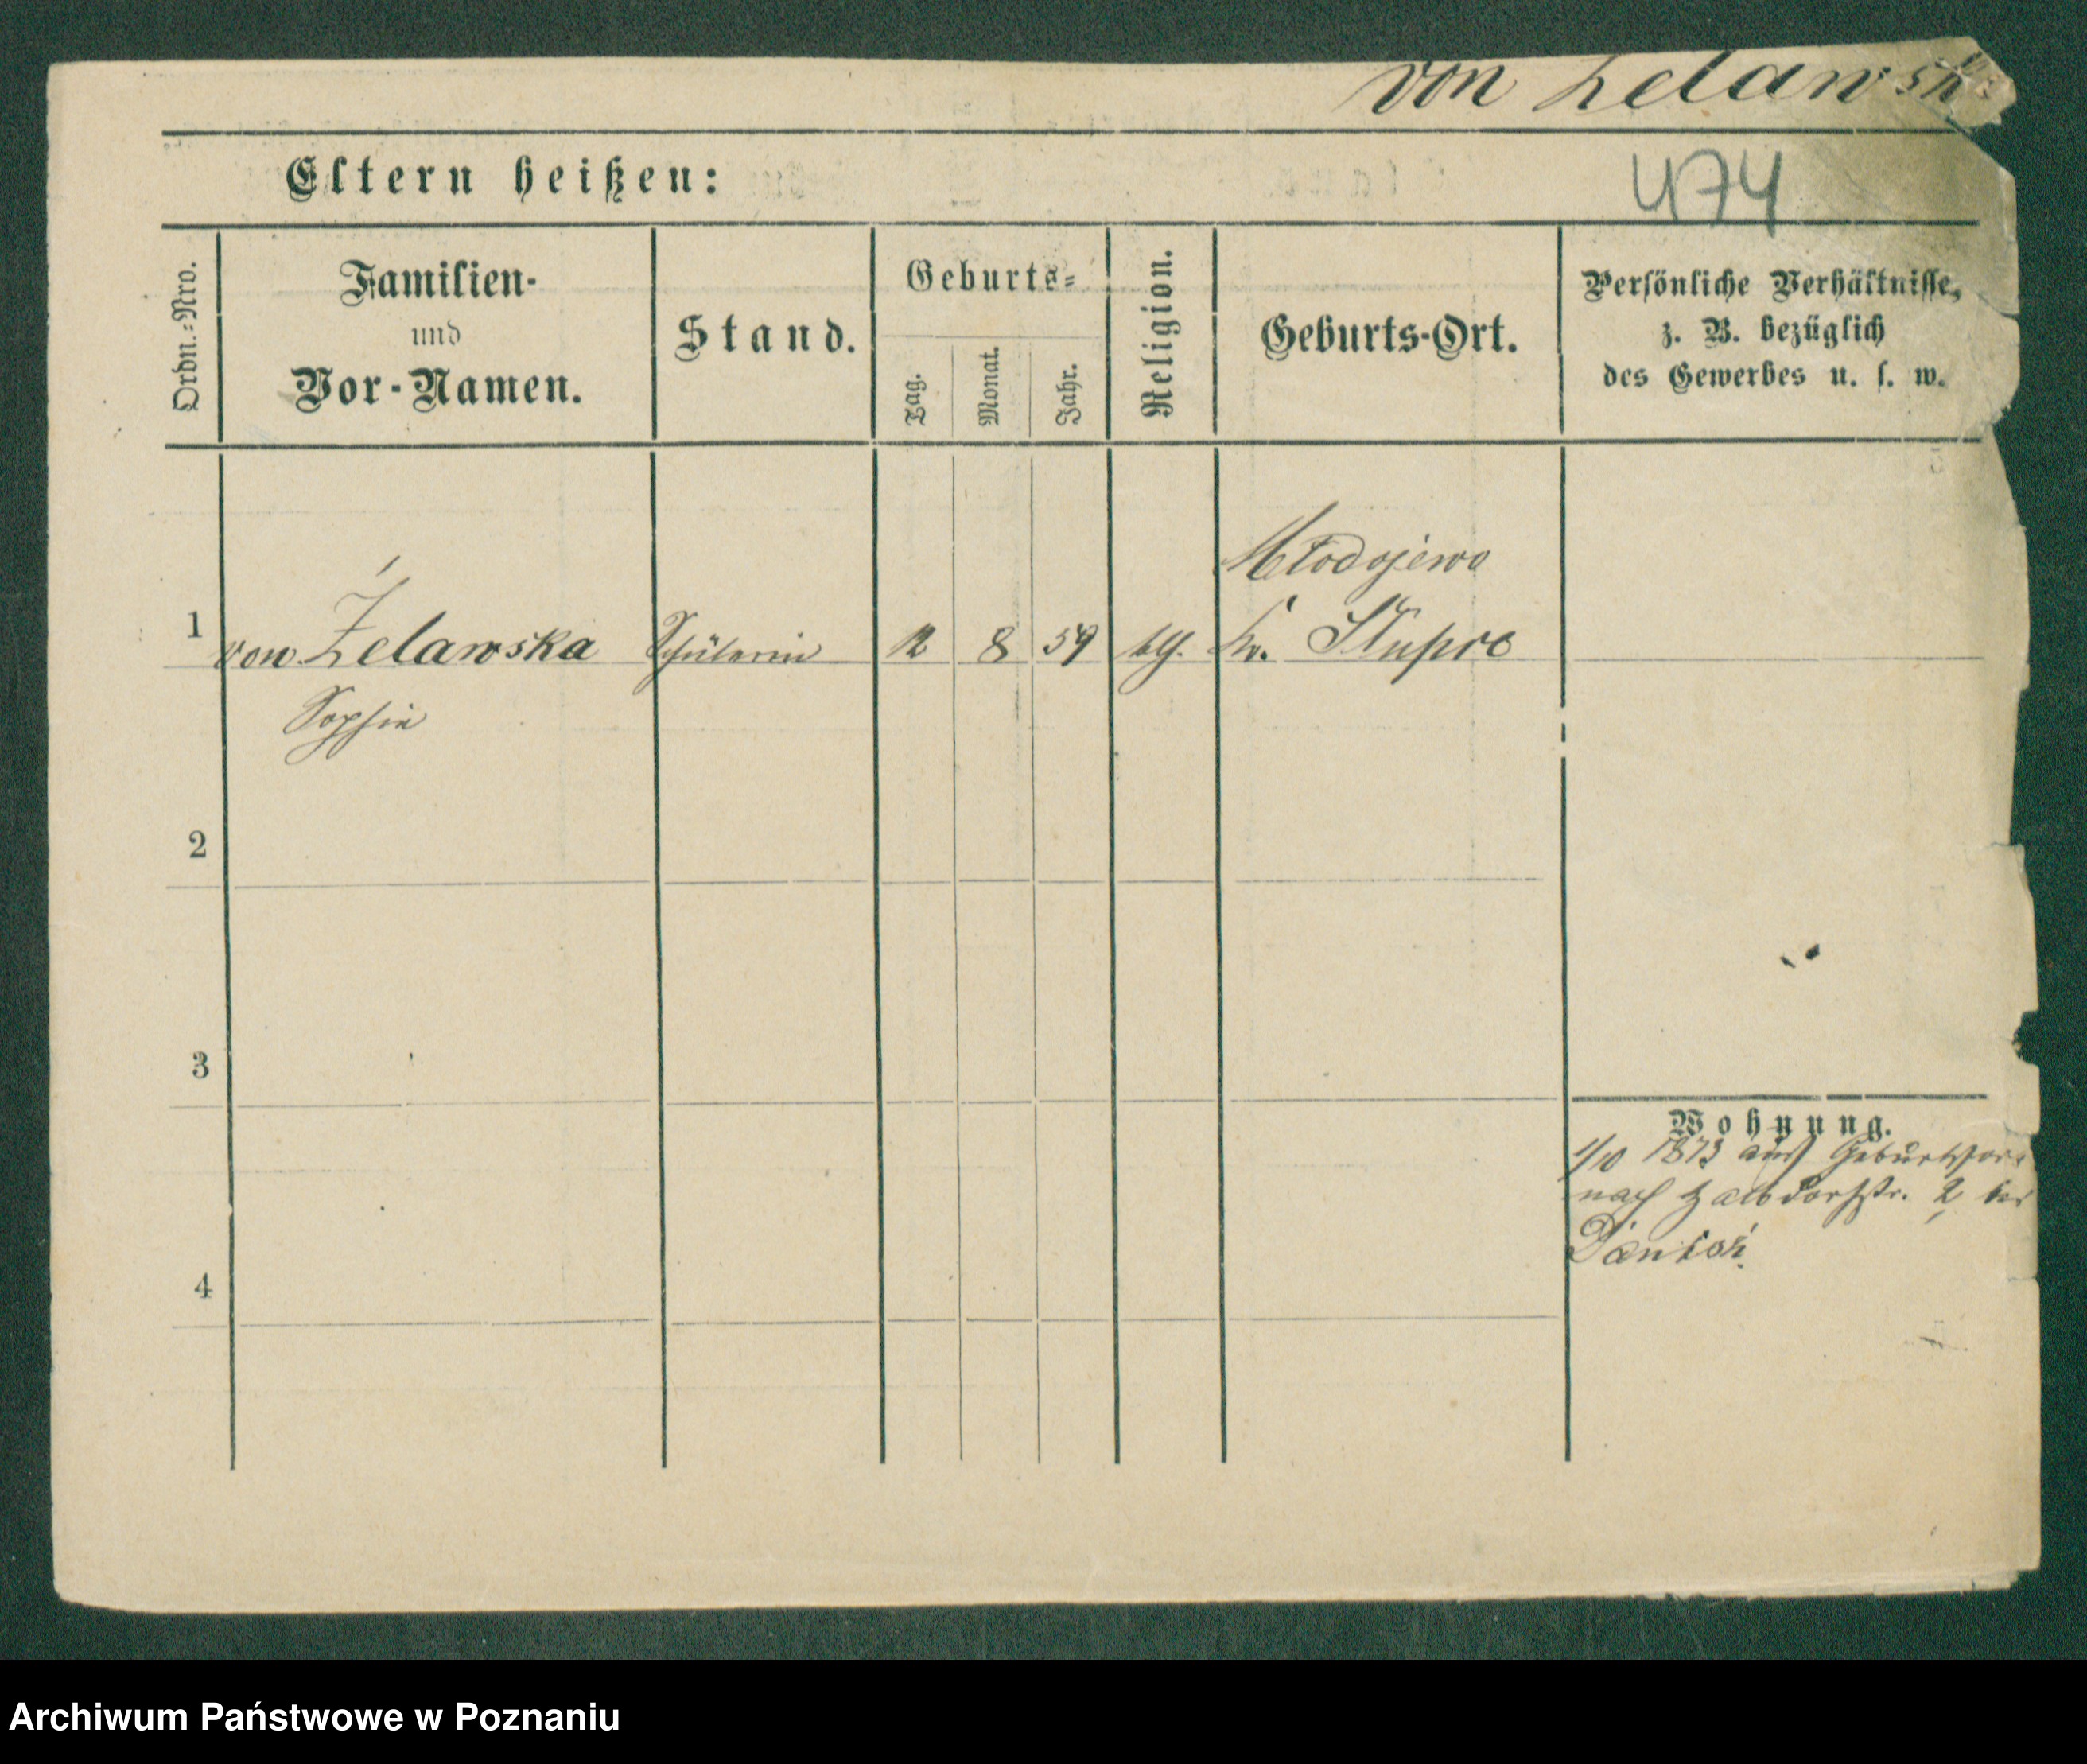 von Żelawsk
Eltern heißen:
474
Ordn.=Nro.
Familien-
und
Vor-Namen.
Stand.
Geburts=
Tag.
Monat.
Jahr.
Religion.
Geburts-Ort.
Persönliche Verhältnisse,
z. B. bezüglich
des Gewerbes u. s. w.
Młodojewo
1 von Żelawska Schülerin 12 8 59 kth. Kr. Słupce
Sophie
2
3
Wohnung.
1/10 1873 aus Geburtsort
nach Halbdorfstr. 2 bei
4
Archiwum Państwowe w Poznaniu